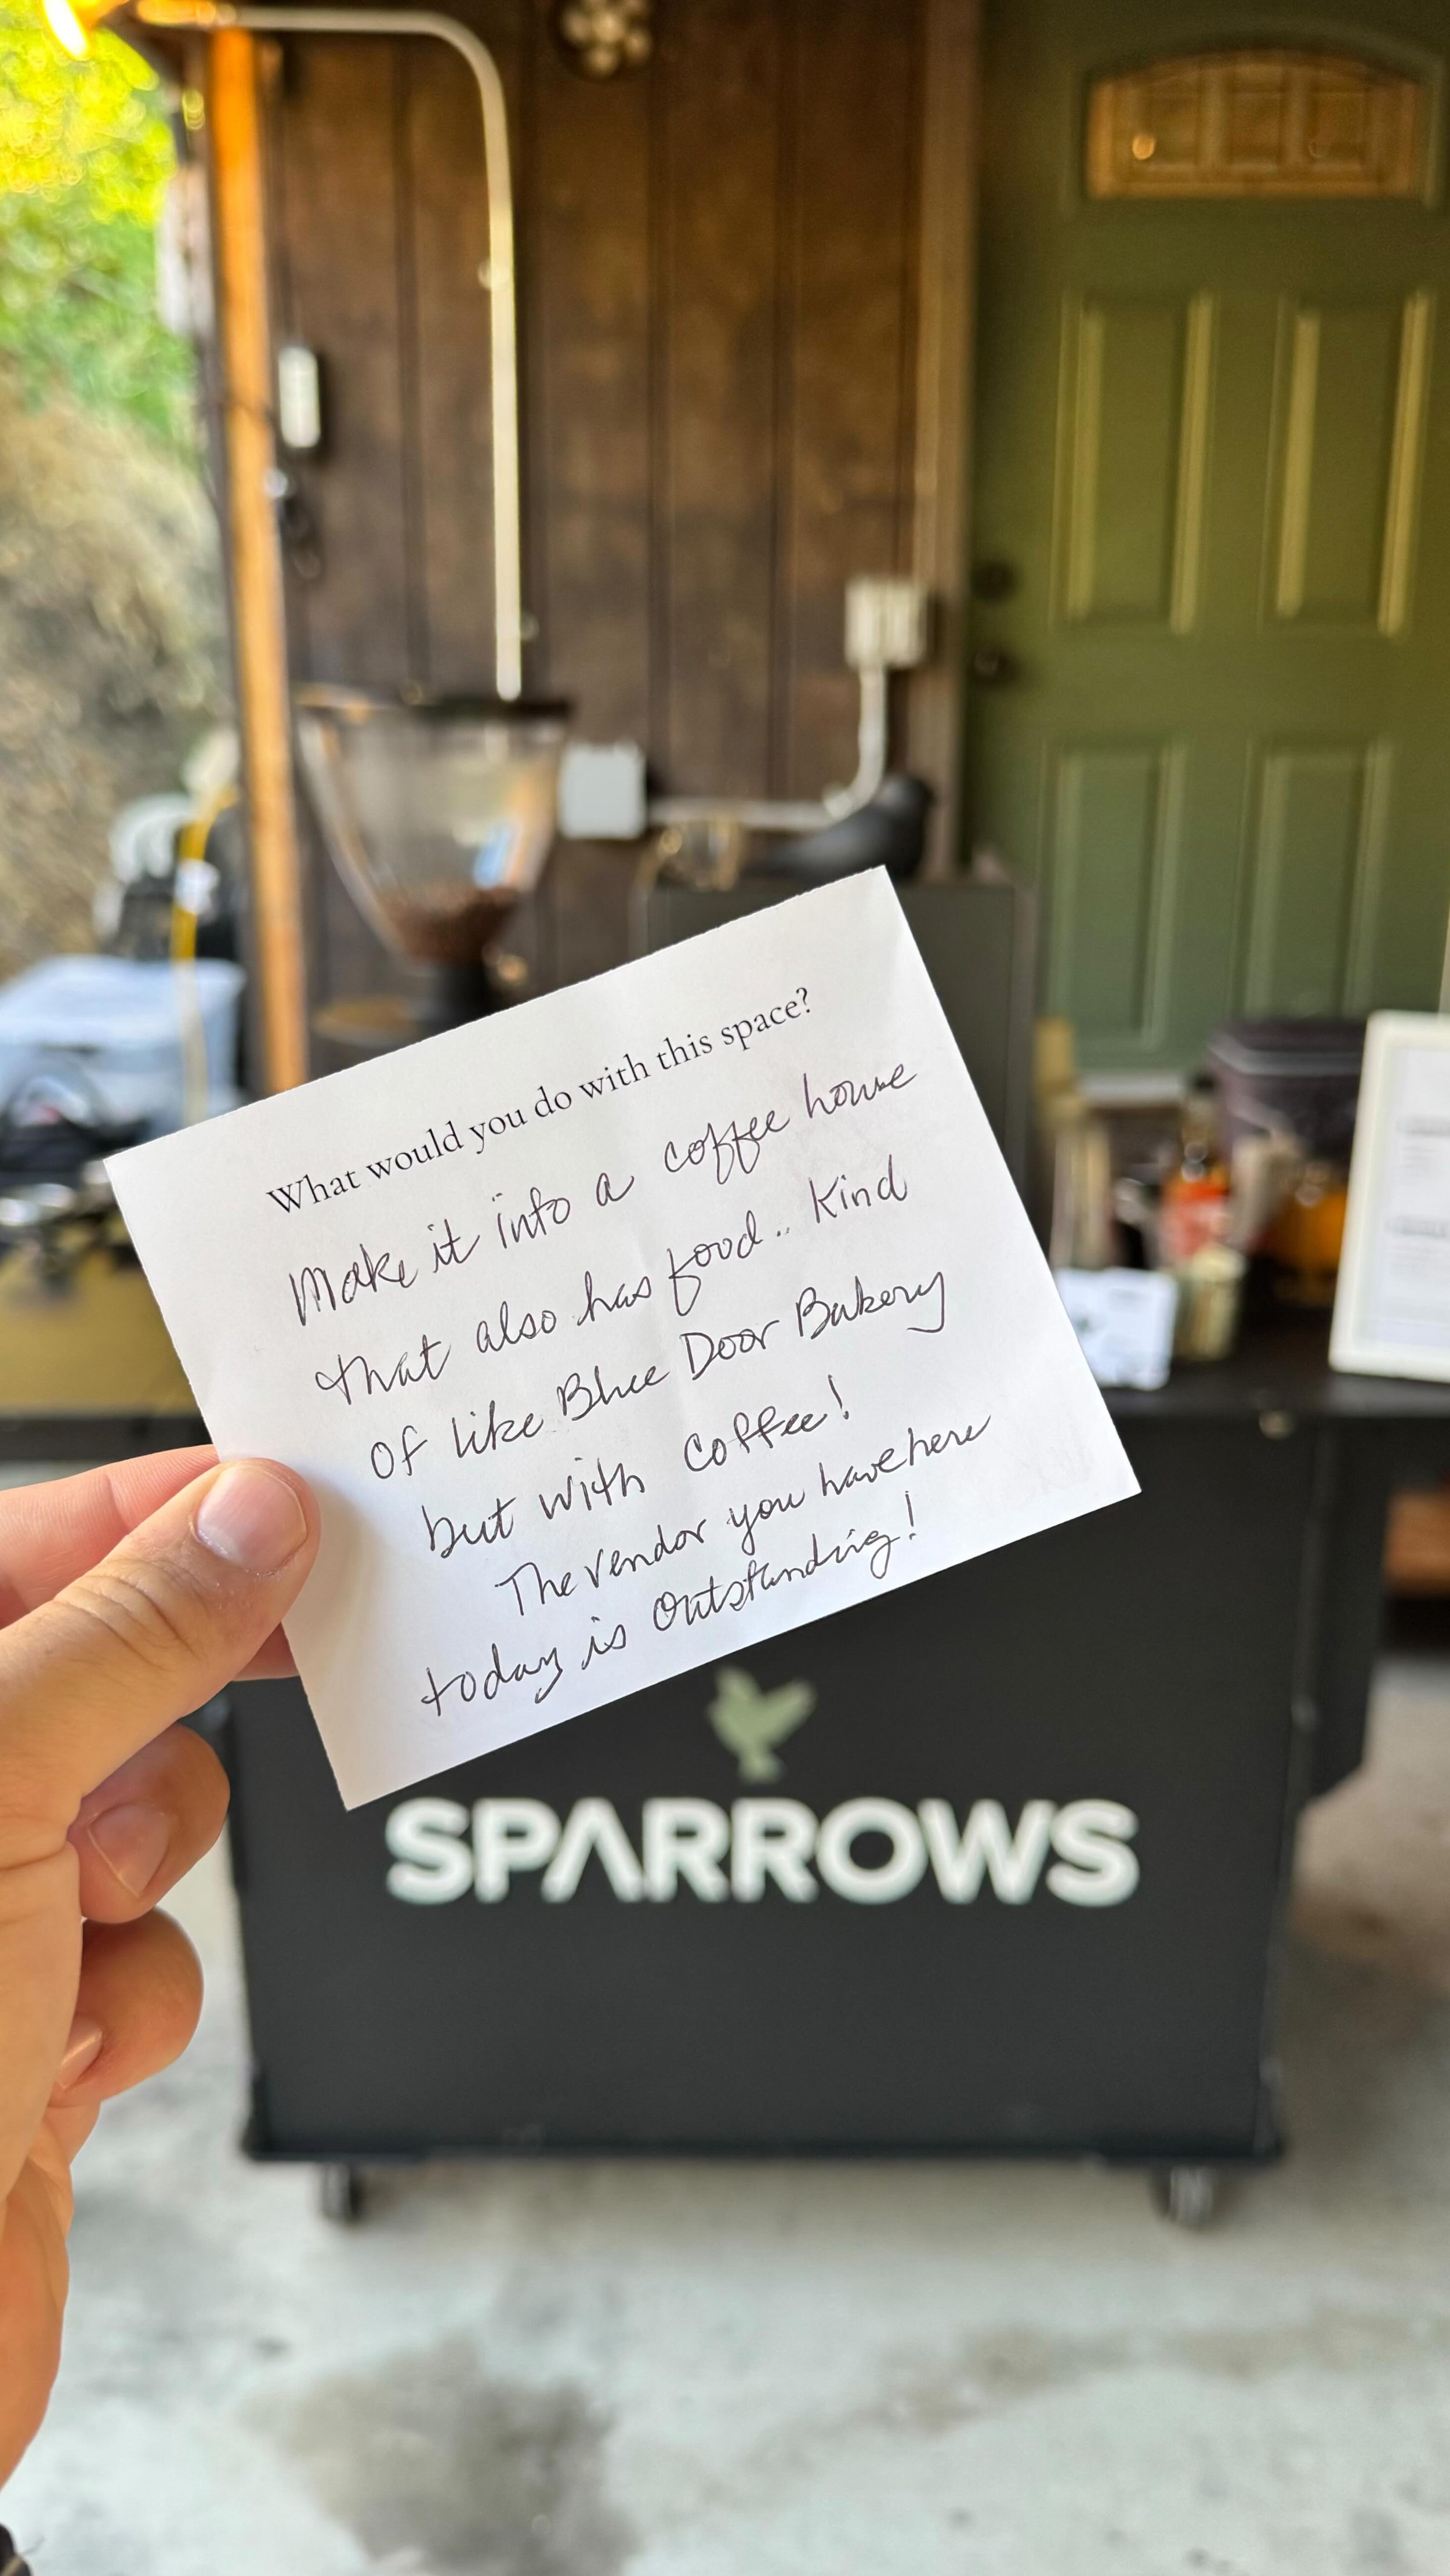 What would you do with this space?
Make it into a coffee house
that also has food.. Kind
of like Blue Door Bakery
but with coffee!
The vendor you have here
today is Outstanding!
SPARROWS